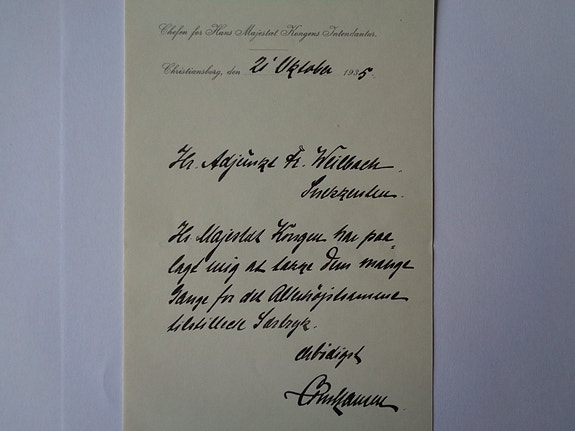 Chefen for Hans Majestæt Kongens Intendantur.
Christiansborg, den 21' Oktober 1935.
Hr. Adjunkt Fr. Weilbach.
Hs Majestæt Kongen har paa-
lagt mig at takke Dem mange
Gange for det Allerhøjstsamme
tilstillede Særtryk.
Ærbødigst